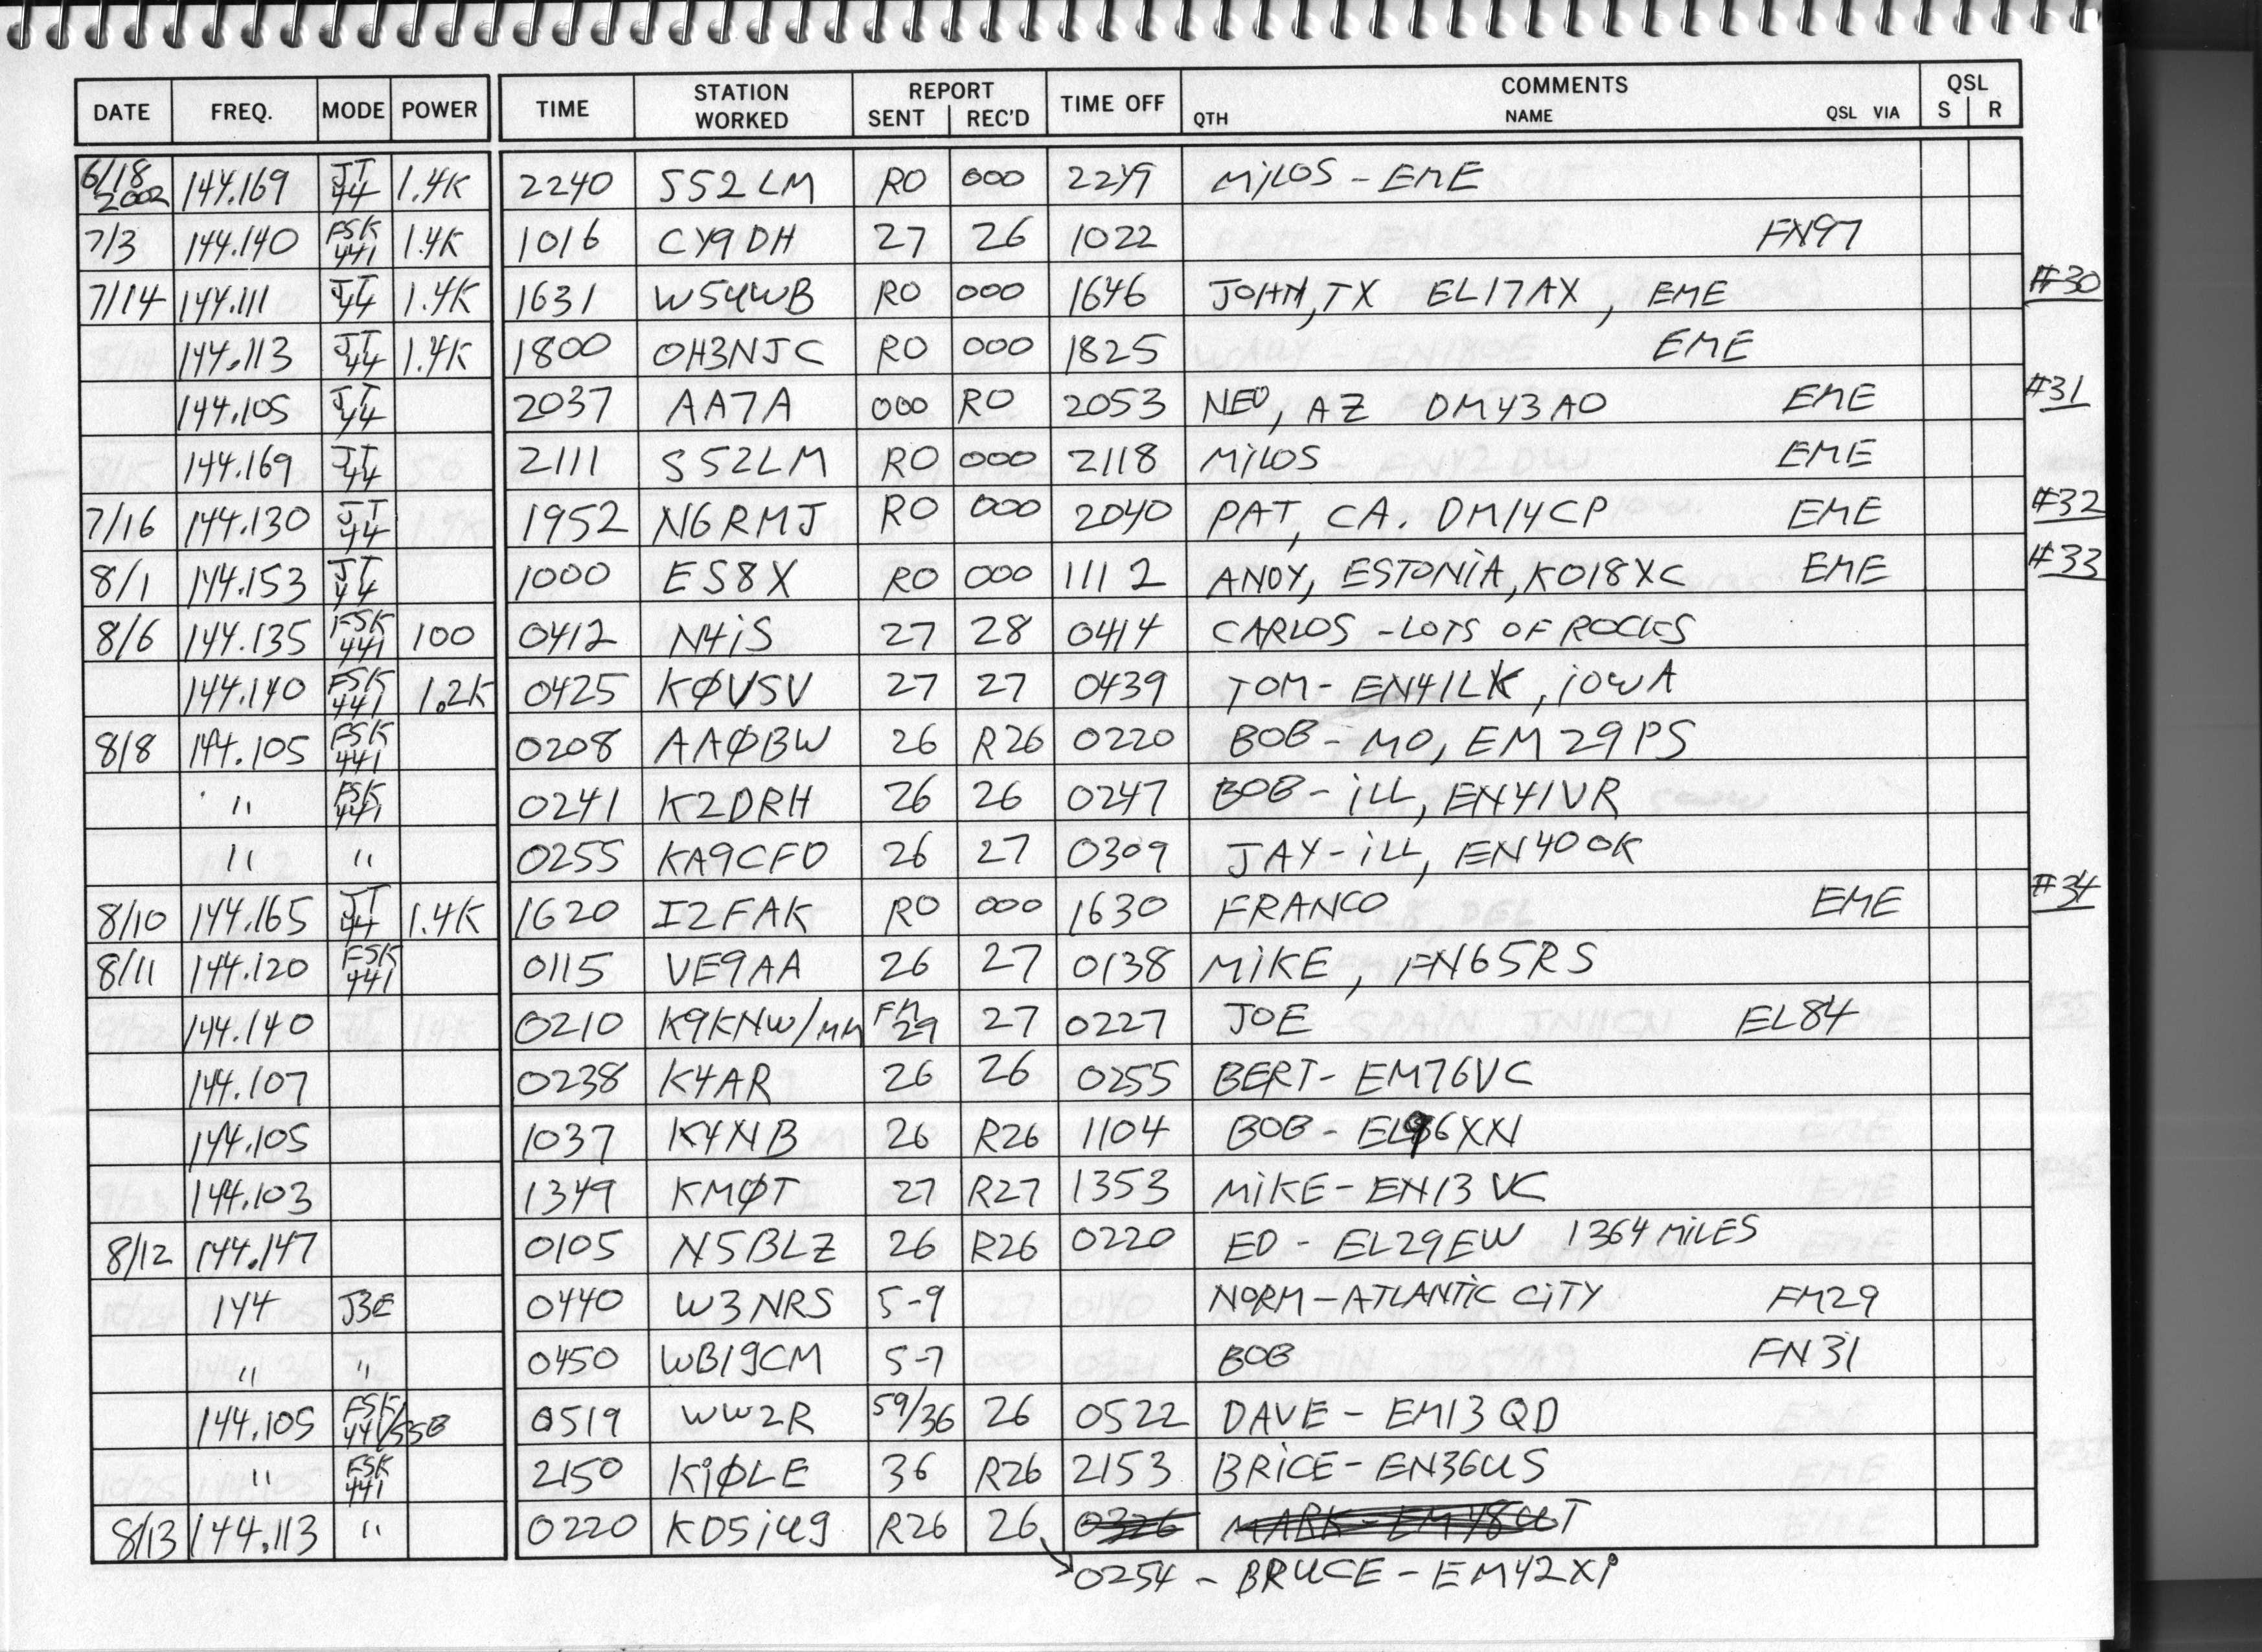 DATE FREQ. MODE POWER TIME STATION WORKED REPORT SENT REC'D TIME OFF COMMENTS QTH NAME QSL VIA QSL S R
6/18 2002 144.169 JT 44 1.4K 2240 S52LM RO 000 2249 MILOS - EME
7/3 144.140 FSK 441 1.4K 1016 CY9DH 27 26 1022 FN97
7/14 144.111 JT 44 1.4K 1631 W5UWB RO 000 1646 JOHN, TX EL17AX, EME #30
144.113 JT 44 1.4K 1800 OH3NJC RO 000 1825 EME
144.105 JT 44 2037 AA7A 000 RO 2053 NED, AZ DM43AO EME #31
144.169 JT 44 2111 S52LM RO 000 2118 MILOS EME
7/16 144.130 JT 44 1952 N6RMJ RO 000 2040 PAT, CA. DM14CP EME #32
8/1 144.153 JT 44 1000 ES8X RO 000 1112 ANDY, ESTONIA, KO18XC EME #33
8/6 144.135 FSK 441 100 0412 N4iS 27 28 0414 CARLOS - LOTS OF ROCKS
144.140 FSK 441 1.2K 0425 KØVSV 27 27 0439 TOM - EN41LK, iOWA
8/8 144.105 FSK 441 0208 AAØBW 26 R26 0220 BOB - MO, EM29PS
" FSK 441 0241 K2DRH 26 26 0247 BOB - iLL, EN41VR
" " 0255 KA9CFD 26 27 0309 JAY - iLL, EN40OK
8/10 144.165 JT 44 1.4K 1620 I2FAK RO 000 1630 FRANCO EME #34
8/11 144.120 FSK 441 0115 VE9AA 26 27 0138 MIKE, FN65RS
144.140 0210 K9KNW/MM FM 29 27 0227 JOE EL84
144.107 0238 K4AR 26 26 0255 BERT - EM76VC
144.105 1037 K4NB 26 R26 1104 BOB - EL96XN
144.103 1349 KMØT 27 R27 1353 MIKE - EN13VC
8/12 144.147 0105 N5BLZ 26 R26 0220 ED - EL29EW 1364 MILES
144 J3E 0440 W3NRS 5-9 NORM - ATLANTIC CITY FM29
" " 0450 WB1GCM 5-7 BOB FN31
144.105 FSK 441/SSB 0519 WW2R 59/36 26 0522 DAVE - EM13QD
" FSK 441 2150 KiØLE 36 R26 2153 BRICE - EN36US
8/13 144.113 " 0220 KD5iUG R26 26 0326 MARK - EM48UT
0254 - BRUCE - EM42XP